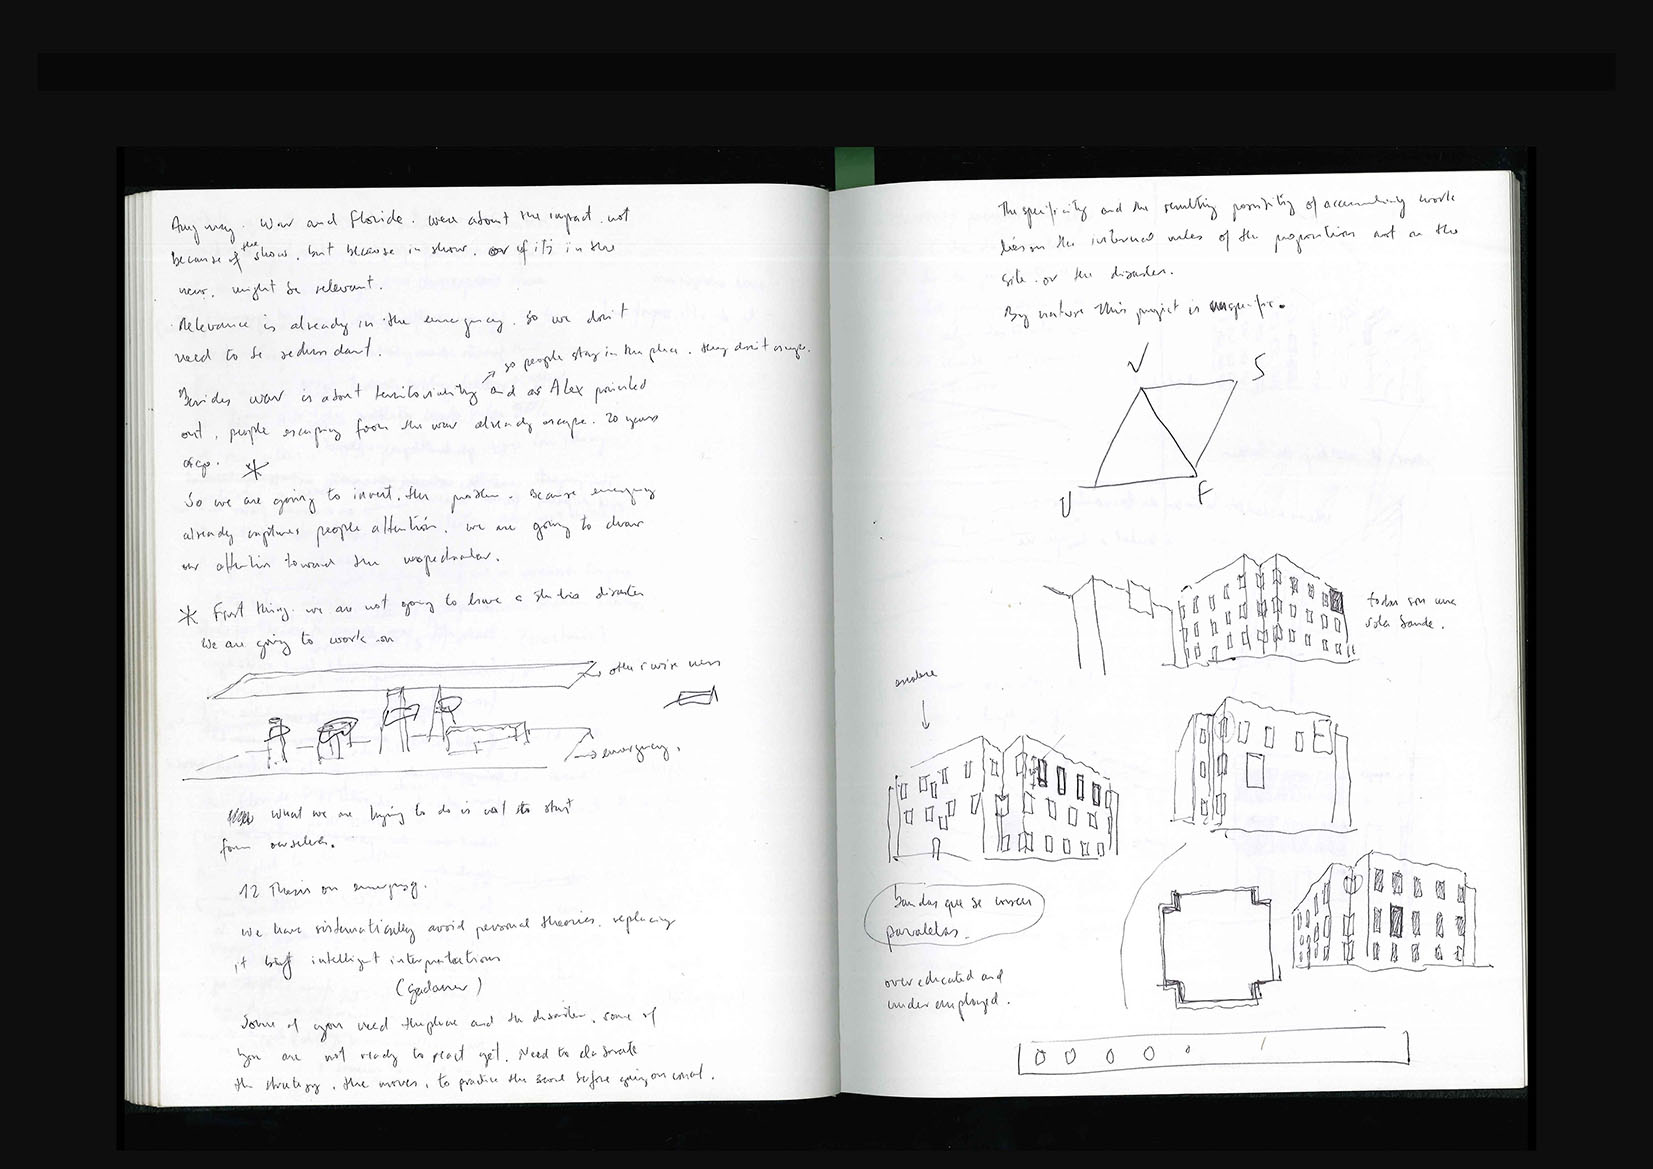 Any way. War and Floride. were about the impact. not
because of the show. but because in show. or if it's in the
news, might be relevant.
Relevance is already in the emergency. so we don't
need to be redundant.
so people stay in the place. they don't escape.
Besides war is about territoriality and as Alex pointed
out, people escaping from the war already escape. 20 years
ago. *
So we are going to invert the problem. Because emergency
already captures people attention. we are going to draw
our attention toward the
* First thing. we are not going to have a disaster
We are going to work on
otherwise
emergency.
What we are trying to do is not to start
from ourselves.
12 Thesis on emergency.
We have systematically avoid personal theories. replacing
it intelligent interpretations
(Gadamer)
Some of you need the place and the disaster. some of
you are not ready to react yet. Need to elaborate
the strategy. the moves. to practice the before going on
The specificity and the resulting possibility of accumulating work
lies on the internal rules of the proposition not on the
site. or the disaster.
By nature this project is unspecific.
V S
U F
todas son una
sola banda.
bandas que se creen
paralelas.
over educated and
under employed.